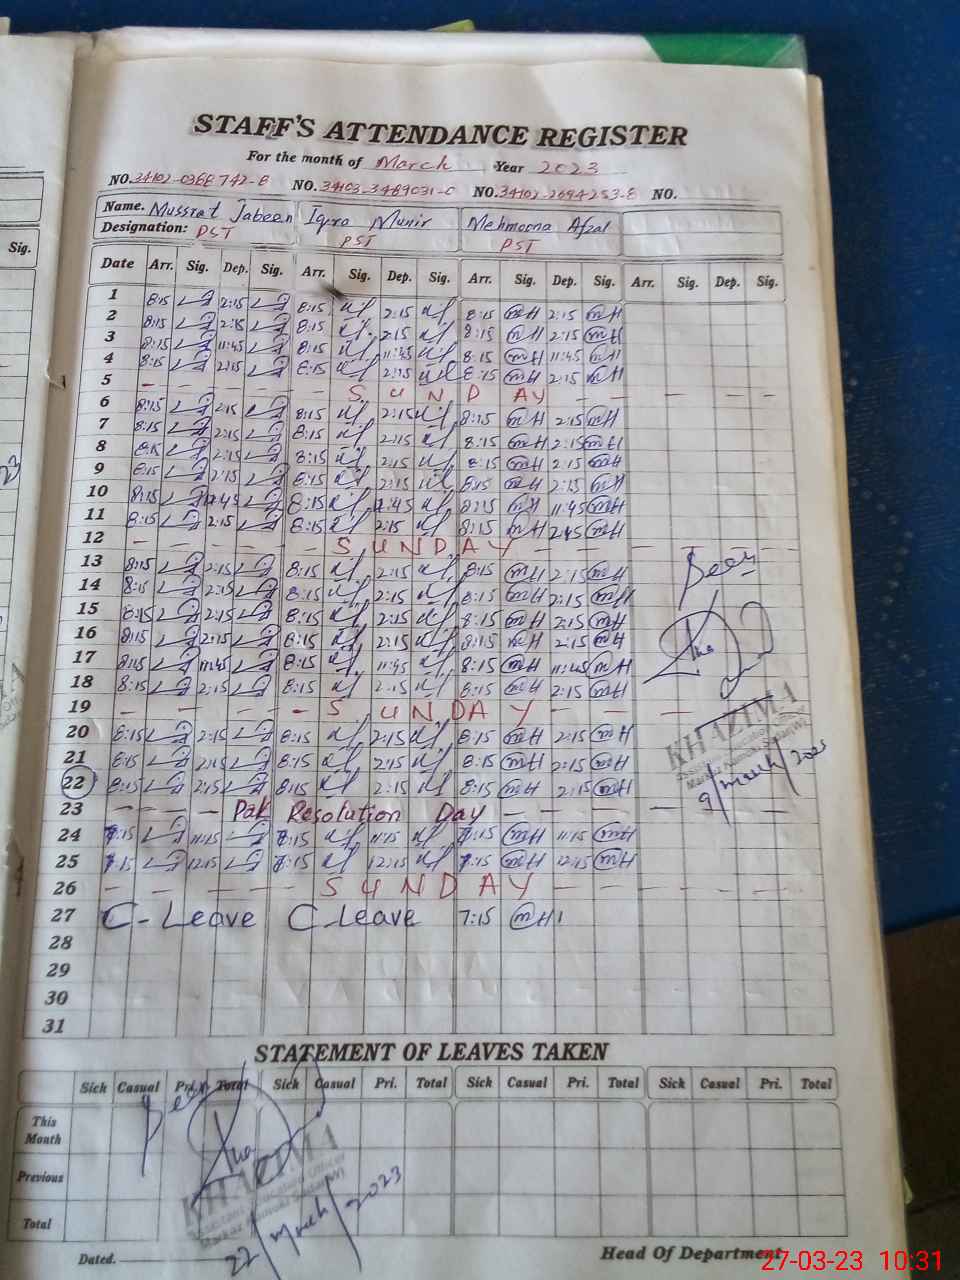 STAFF'S ATTENDANCE REGISTER
For the month of March Year 2023
NO. 34102-0388742-8 NO. 34103-3489031-0 NO. 34102-2694253-8 NO.
Name. Mussrat Jabeen Iqra Munir Mehmoona Afzal
Designation: PST PST PST
Sig.
Date Arr. Sig. Dep. Sig. Arr. Sig. Dep. Sig. Arr. Sig. Dep. Sig. Arr. Sig. Dep. Sig.
1 8:15 2:15 8:15 2:15 8:15 mH 2:15 mH
2 8:15 2:15 8:15 2:15 8:15 mH 2:15 mH
3 8:15 11:45 8:15 11:45 8:15 mH 11:45 mH
4 8:15 2:15 8:15 2:15 8:15 mH 2:15 mH
5 SUNDAY
6 8:15 2:15 8:15 2:15 8:15 mH 2:15 mH
7 8:15 2:15 8:15 2:15 8:15 mH 2:15 mH
8 8:15 2:15 8:15 2:15 8:15 mH 2:15 mH
9 8:15 2:15 8:15 2:15 8:15 mH 2:15 mH
10 8:15 11:45 8:15 11:45 8:15 mH 11:45 mH
11 8:15 2:15 8:15 2:15 8:15 mH mH
12 SUNDAY
13 8:15 2:15 8:15 2:15 8:15 mH 2:15 mH
14 8:15 2:15 8:15 2:15 8:15 mH 2:15 mH
15 8:15 2:15 8:15 2:15 8:15 mH 2:15 mH
16 8:15 2:15 8:15 2:15 8:15 mH 2:15 mH
17 8:15 11:45 8:15 11:45 8:15 mH 11:45 mH
18 8:15 2:15 8:15 2:15 8:15 mH 2:15 mH
19 SUNDAY
20 8:15 2:15 8:15 2:15 8:15 mH 2:15 mH
21 8:15 2:15 8:15 2:15 8:15 mH 2:15 mH
22 8:15 2:15 8:15 2:15 8:15 mH 2:15 mH
23 Pak Resolution Day
24 7:15 11:15 7:15 11:15 7:15 mH 11:15 mH
25 7:15 12:15 7:15 12:15 7:15 mH 12:15 mH
26 SUNDAY
27 C-Leave C Leave 7:15 mH
28
29
30
31
Seen
KHAZIMA
Assistant Education Officer
9/March/2023
STATEMENT OF LEAVES TAKEN
Sick Casual Pri. Total Sick Casual Pri. Total Sick Casual Pri. Total Sick Casual Pri. Total
This Month
Previous
Total
Seen
KHAZIMA
Assistant Education Officer
22/March/2023
Dated. Head Of Department
27-03-23 10:31